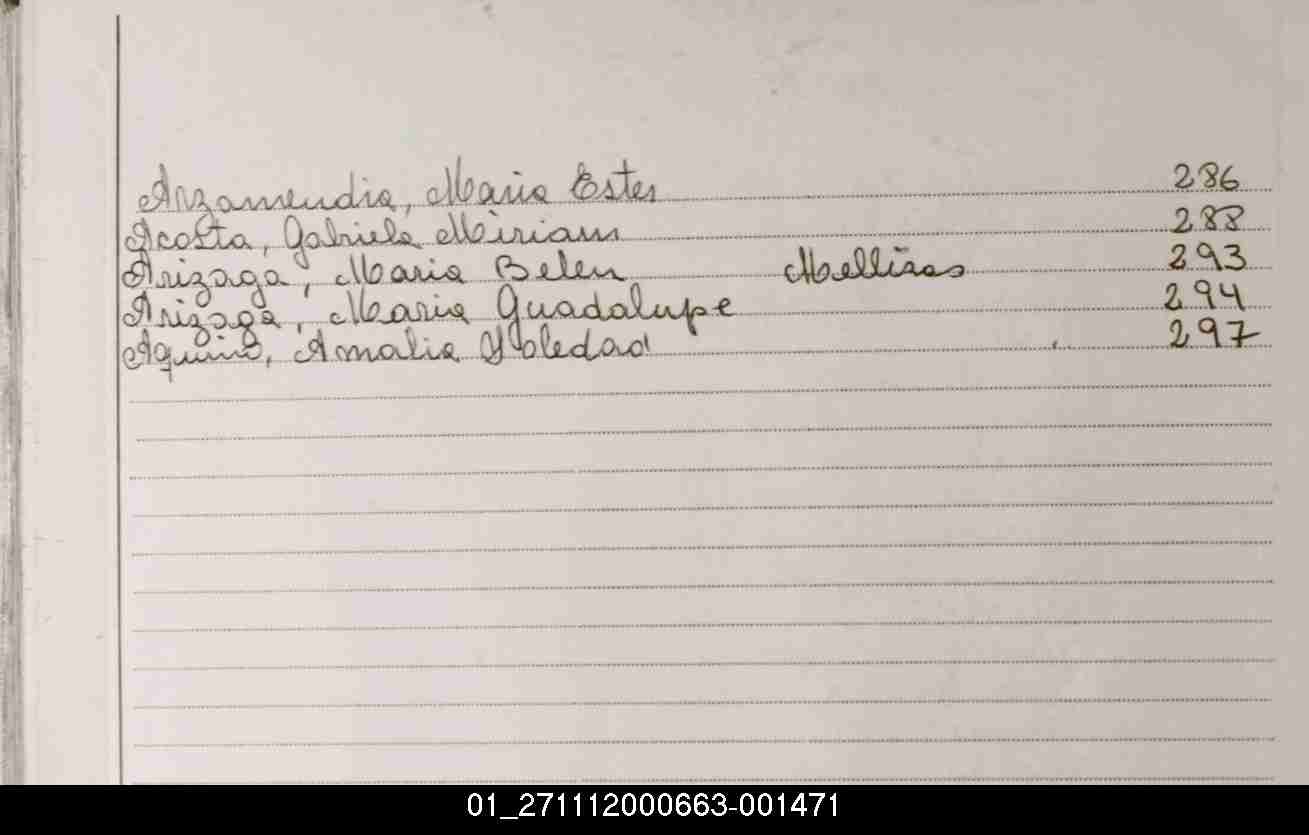 Arzamendia, Maria Ester 286
Acosta, Gabriela Miriam 288
Arizaga, Maria Belen Mellizas 293
Arizaga, Maria Guadalupe 294
Aquino, Amalia Soledad 297
01_271112000663-001471